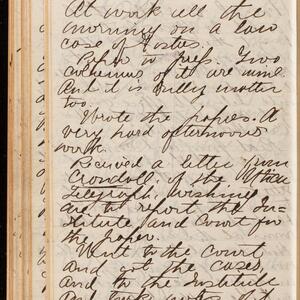 At work all the
morning on a law
case of
Paper to press. Two
columns of it are mine.
And it is silly matter
too.
Wrote the papers. A
very hard afternoons
work.
Received a letter from
Crandall, of the Utica
Telegraph, wishing
me to report the In-
stitute and Court for
the paper.
Went to the court
and got the cases,
and to the Institute
and took notes of it